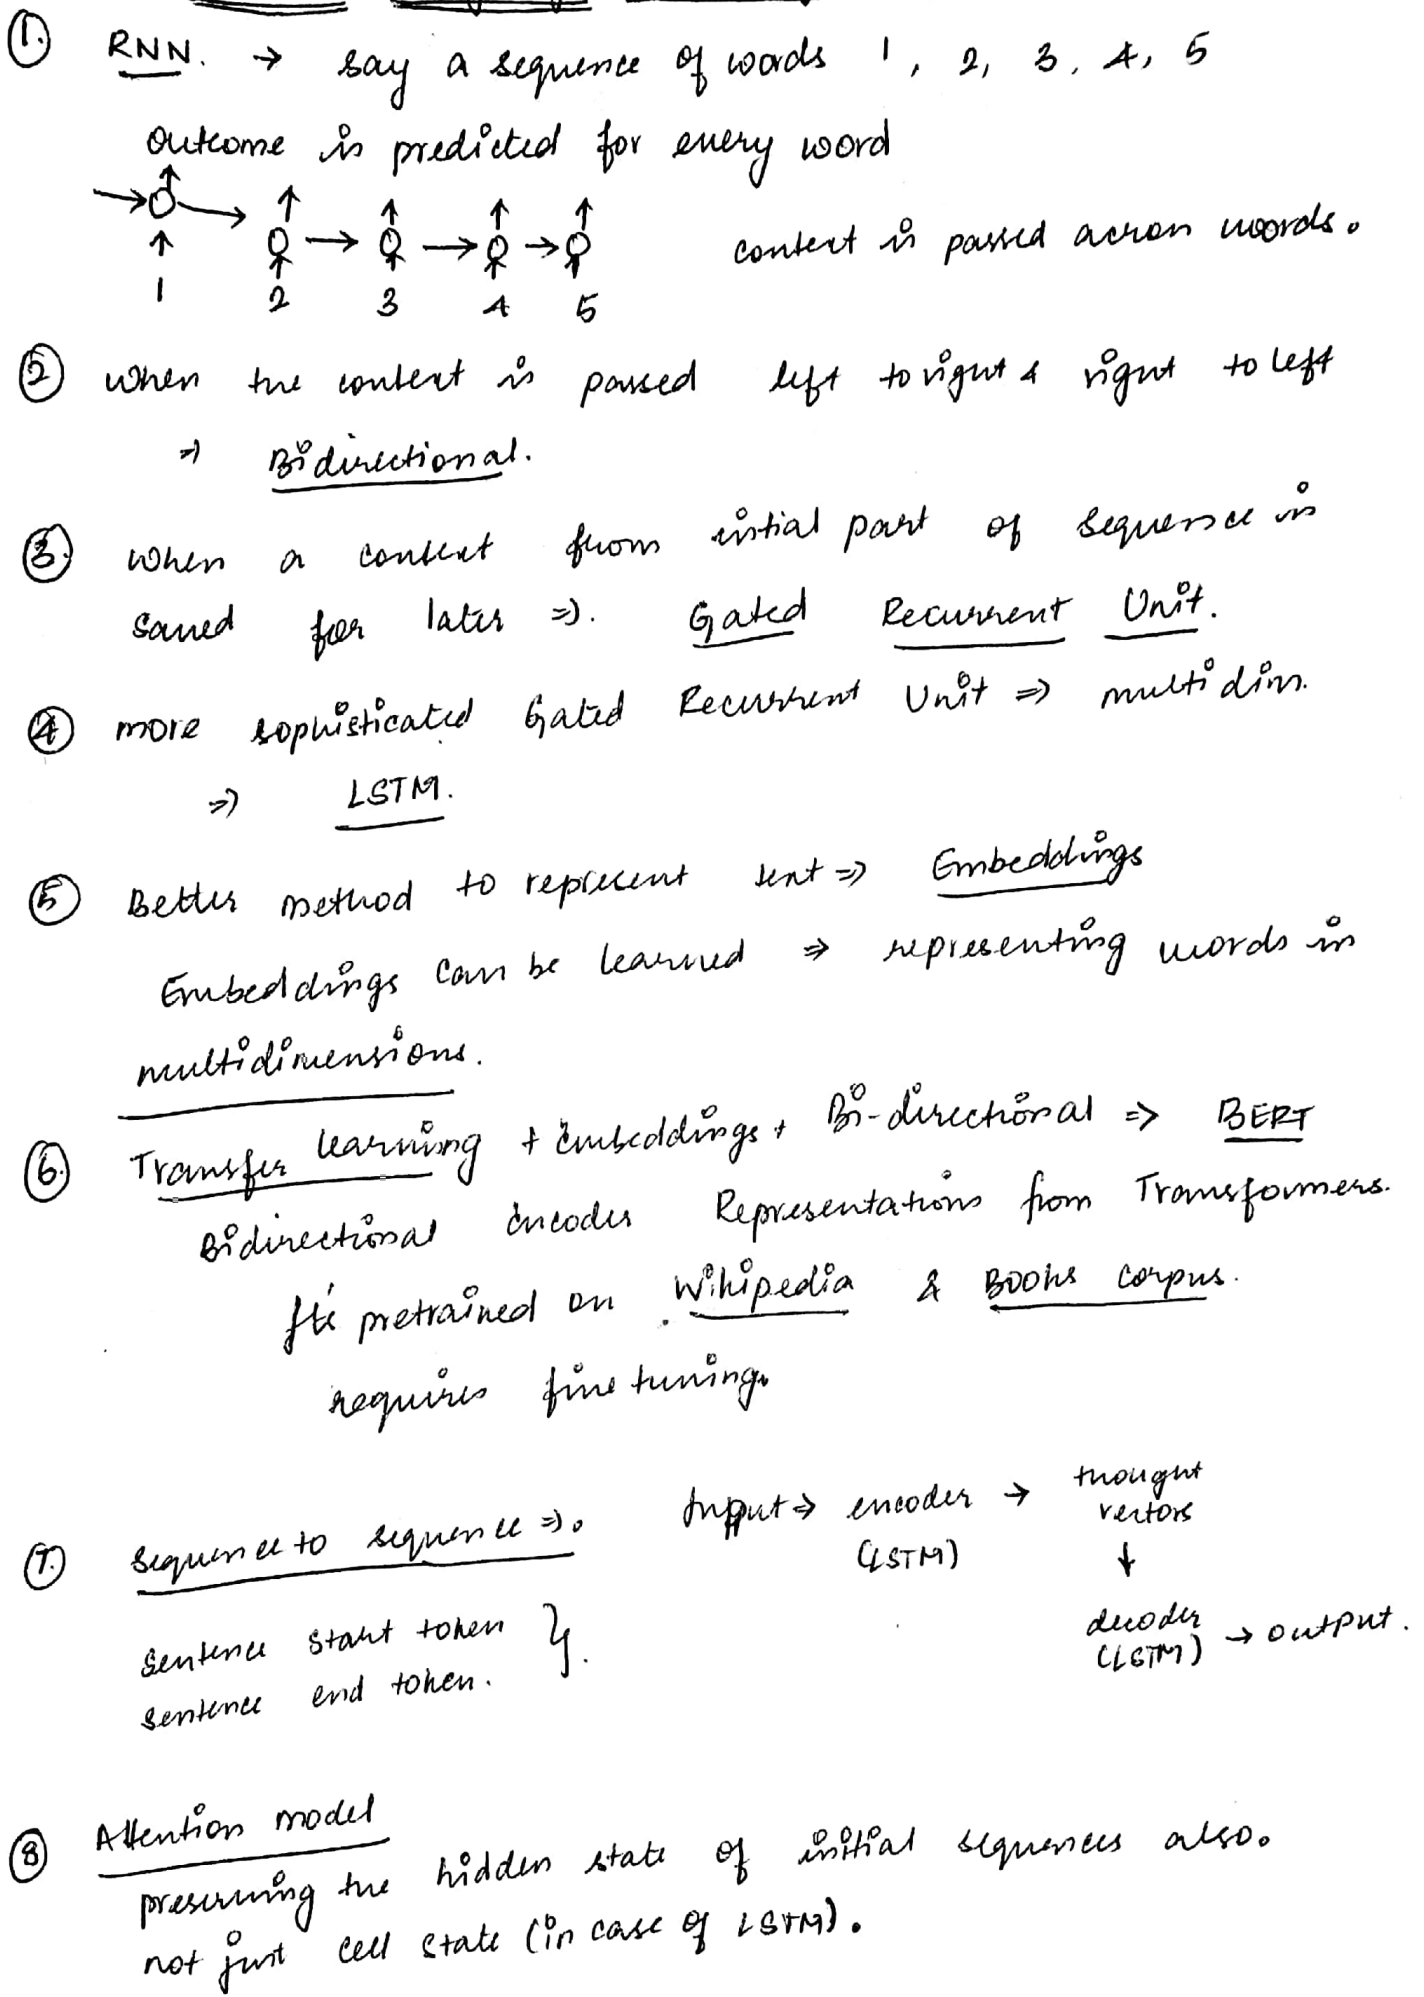 ① RNN. → say a sequence of words 1, 2, 3, 4, 5
Outcome is predicted for every word
context is passed across words.
1 2 3 4 5
② when the context is passed left to right & right to left
⇒ Bidirectional.
③ when a context from initial part of sequence is
saved for later ⇒. Gated Recurrent Unit.
④ more sophisticated Gated Recurrent Unit ⇒ multi dim.
⇒ LSTM.
⑤ Better method to represent text ⇒ Embeddings
Embeddings can be learned ⇒ representing words in
multidimensions.
⑥ Transfer learning + Embeddings + Bi-directional ⇒ BERT
Bidirectional Encoder Representations from Transformers.
It's pretrained on Wikipedia & Books corpus.
requires fine tuning.
⑦ Sequence to sequence ⇒. Input ⇒ encoder → thought
(LSTM) vectors
↓
Sentence start token } decoder → output.
sentence end token. (LSTM)
⑧ Attention model
preserving the hidden state of initial sequences also.
not just cell state (in case of LSTM).